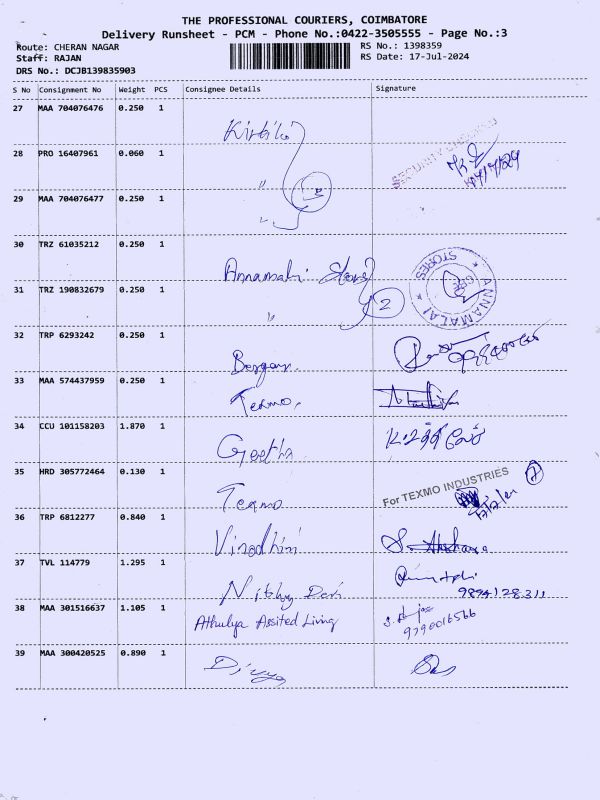 THE PROFESSIONAL COURIERS, COIMBATORE
Delivery Runsheet - PCM - Phone No.:0422-3505555 - Page No.:3
Route: CHERAN NAGAR
RS No.: 1398359
Staff: RAJAN
RS Date: 17-Jul-2024
DRS No.: DCJB139835903
S No Consignment No Weight PCS Consignee Details Signature
27 MAA 704076476 0.250 1
28 PRO 16407961 0.060 1
SECURITY
17/7/24
29 MAA 704076477 0.250 1
30 TRZ 61035212 0.250 1
Annamalai Stores
ANNAMALAI STORES
31 TRZ 190832679 0.250 1
2
32 TRP 6293242 0.250 1
33 MAA 574437959 0.250 1
Texmo.
34 CCU 101158203 1.870 1
Geetha.
35 HRD 305772464 0.130 1
Texmo
For TEXMO INDUSTRIES
36 TRP 6812277 0.840 1
37 TVL 114779 1.295 1
Nithy Devi
9894128311
38 MAA 301516637 1.105 1
Athulya Assited Living
9790016566
39 MAA 300420525 0.890 1
Divya